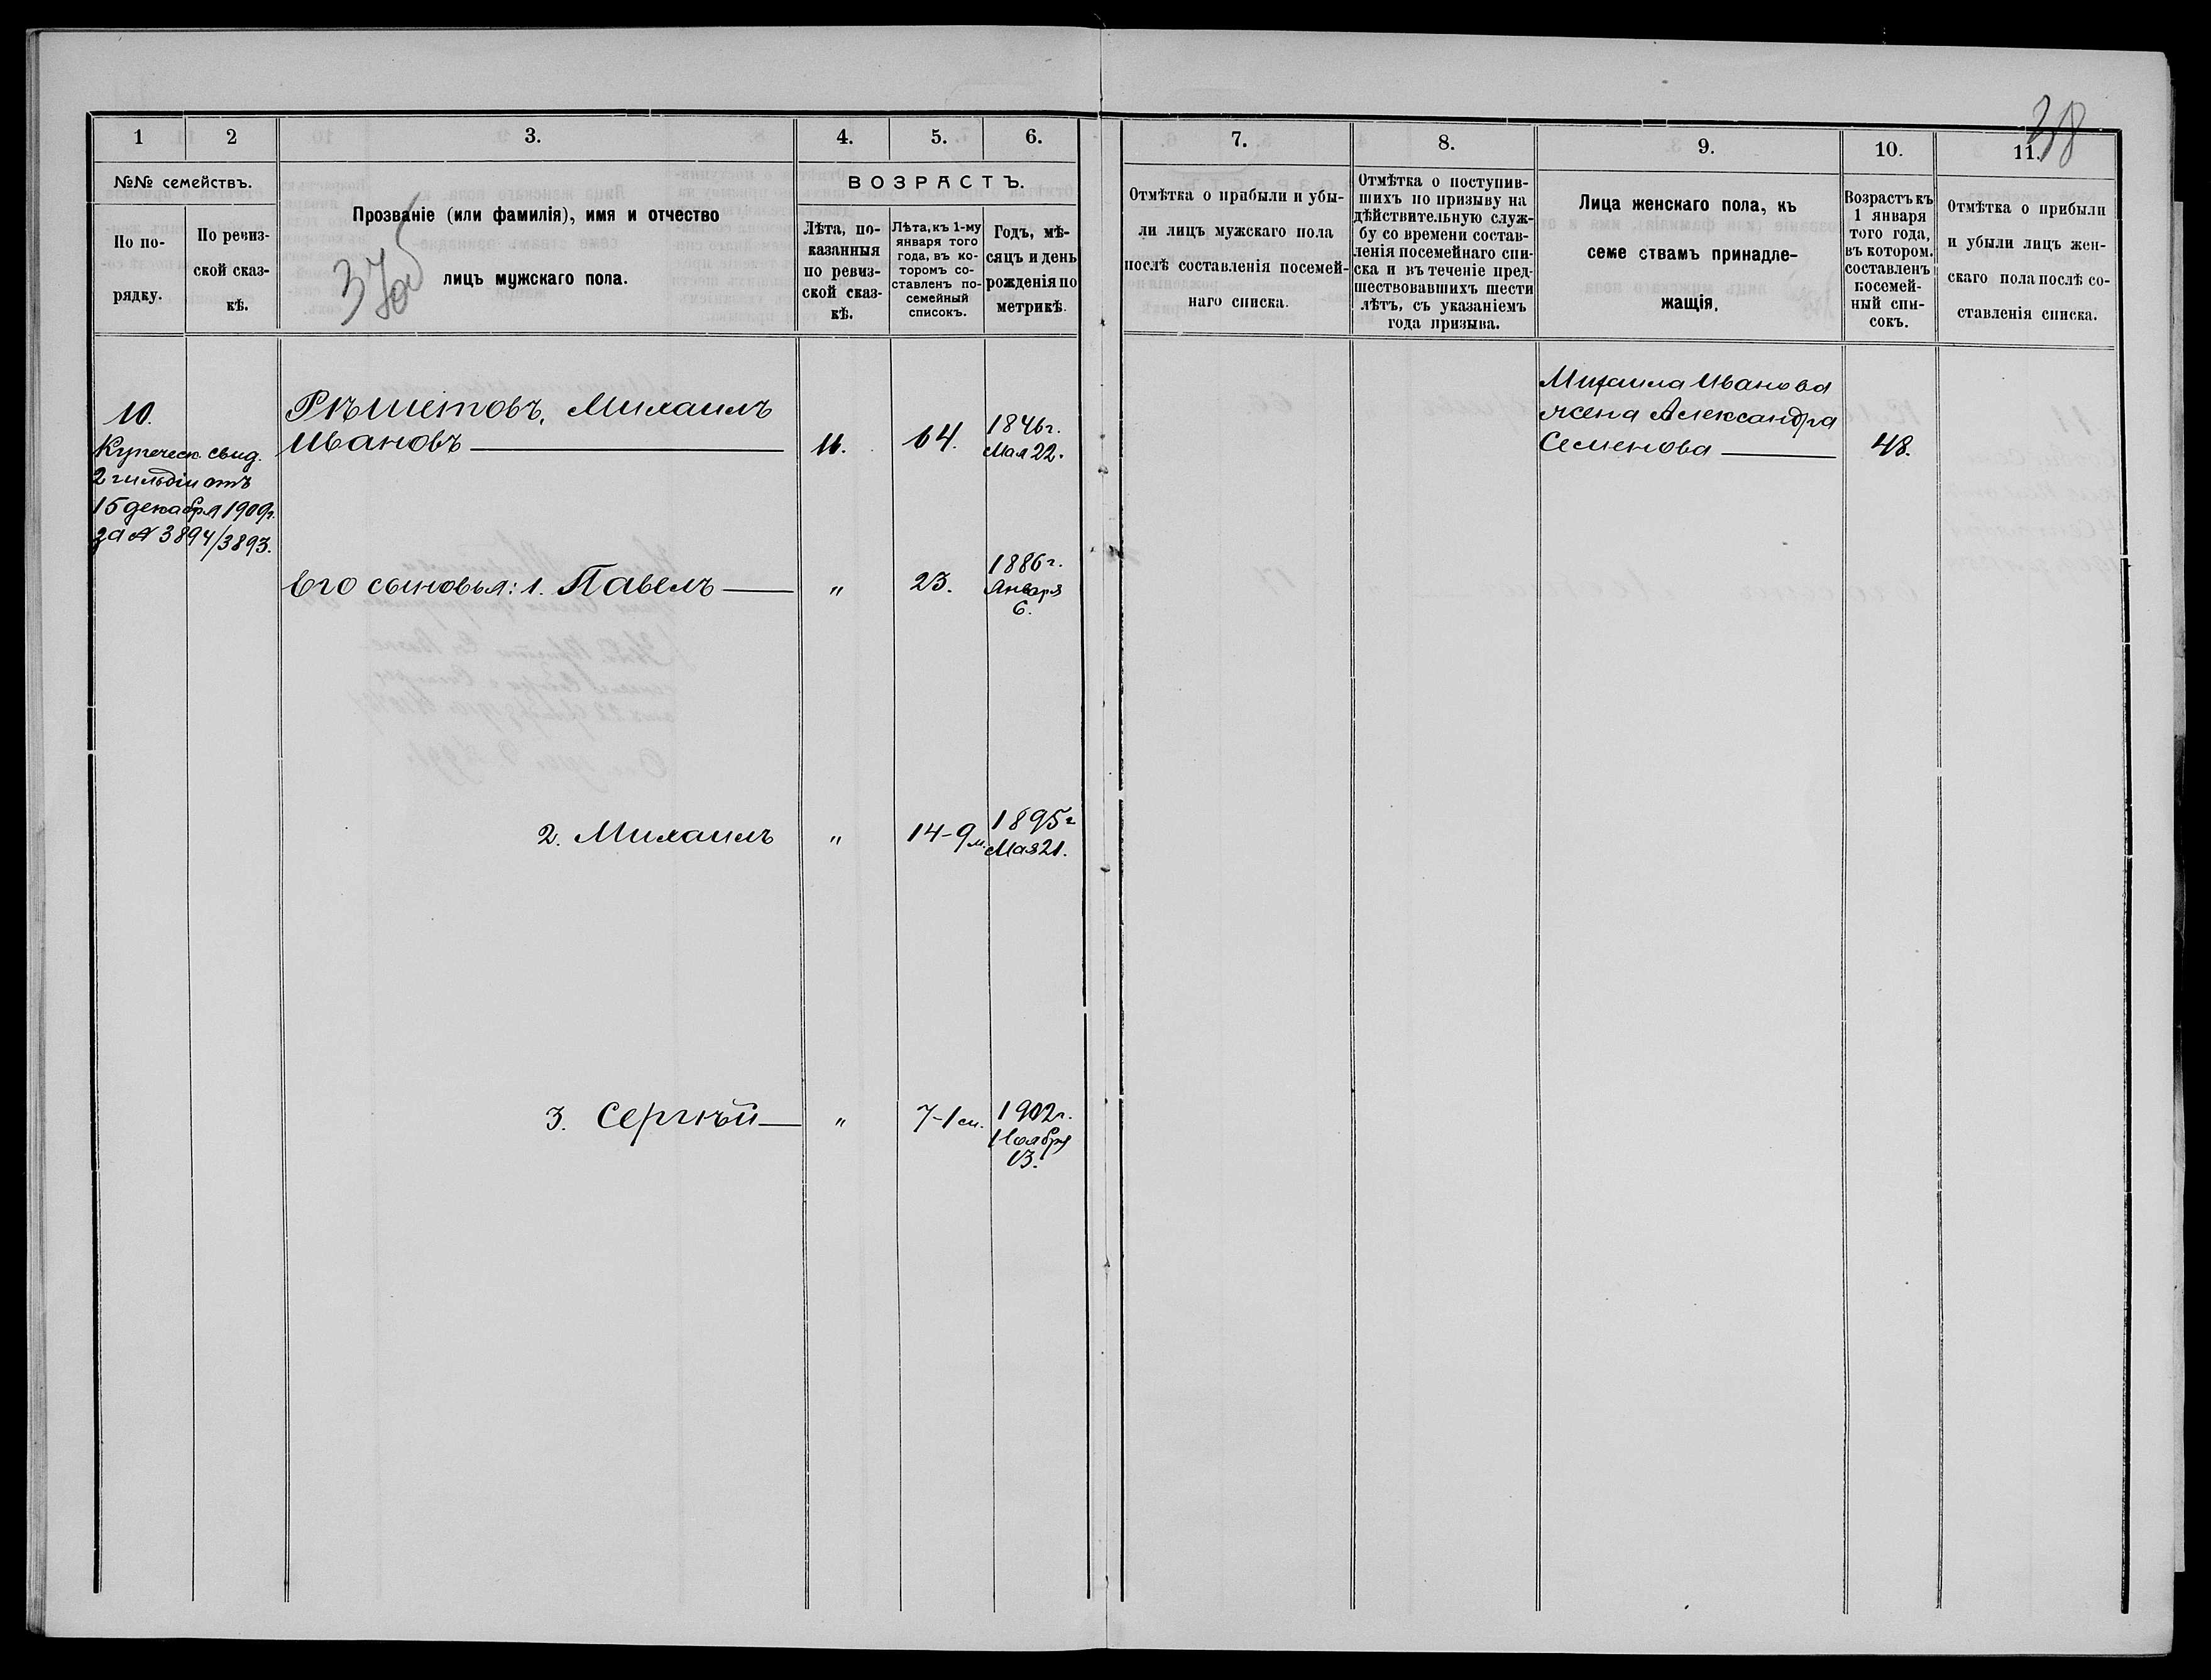 38
1 2 3. 4. 5. 6. 7. 8. 9. 10. 11.
№№ семействъ.
По по-
рядку.
По ревиз-
ской сказ-
кѣ.
Прозваніе (или фамилія), имя и отчество
лицъ мужскаго пола.
ВОЗРАСТЪ.
Лѣта, по-
казанныя
по ревиз-
ской сказ-
кѣ.
Лѣта, къ 1-му
января того
года, въ ко-
торомъ со-
ставленъ по-
семейный
списокъ.
Годъ, мѣ-
сяцъ и день
рожденія по
метрикѣ.
Отмѣтка о прибыли и убы-
ли лицъ мужскаго пола
послѣ составленія посемей-
наго списка.
Отмѣтка о поступив-
шихъ по призыву на
дѣйствительную служ-
бу со времени состав-
ленія посемейнаго спи-
ска и въ теченіе пред-
шествовавшихъ шести
лѣтъ, съ указаніемъ
года призыва.
Лица женскаго пола, къ
семе ствамъ принадле-
жащія.
Возрастъ къ
1 января
того года,
въ котором.
составленъ
посемей-
ный спи-
сокъ.
Отмѣтка о прибыли
и убыли лицъ жен-
скаго пола послѣ со-
ставленія списка.
10.
Купеческ. свид.
2 гильдіи отъ
15 декабря 1909г.
за № 3894/3893.
Рѣшетовъ, Михаилъ
Ивановъ
11. 64. 1846г.
Мая 22.
Михаила Иванова
жена Александра
Семенова 48.
Его сыновья: 1. Павелъ " 23. 1886г.
Января
6.
2. Михаилъ " 14-9м. 1895г
Мая 21.
3. Сергѣй " 7-1м. 1902г.
Ноября
13.